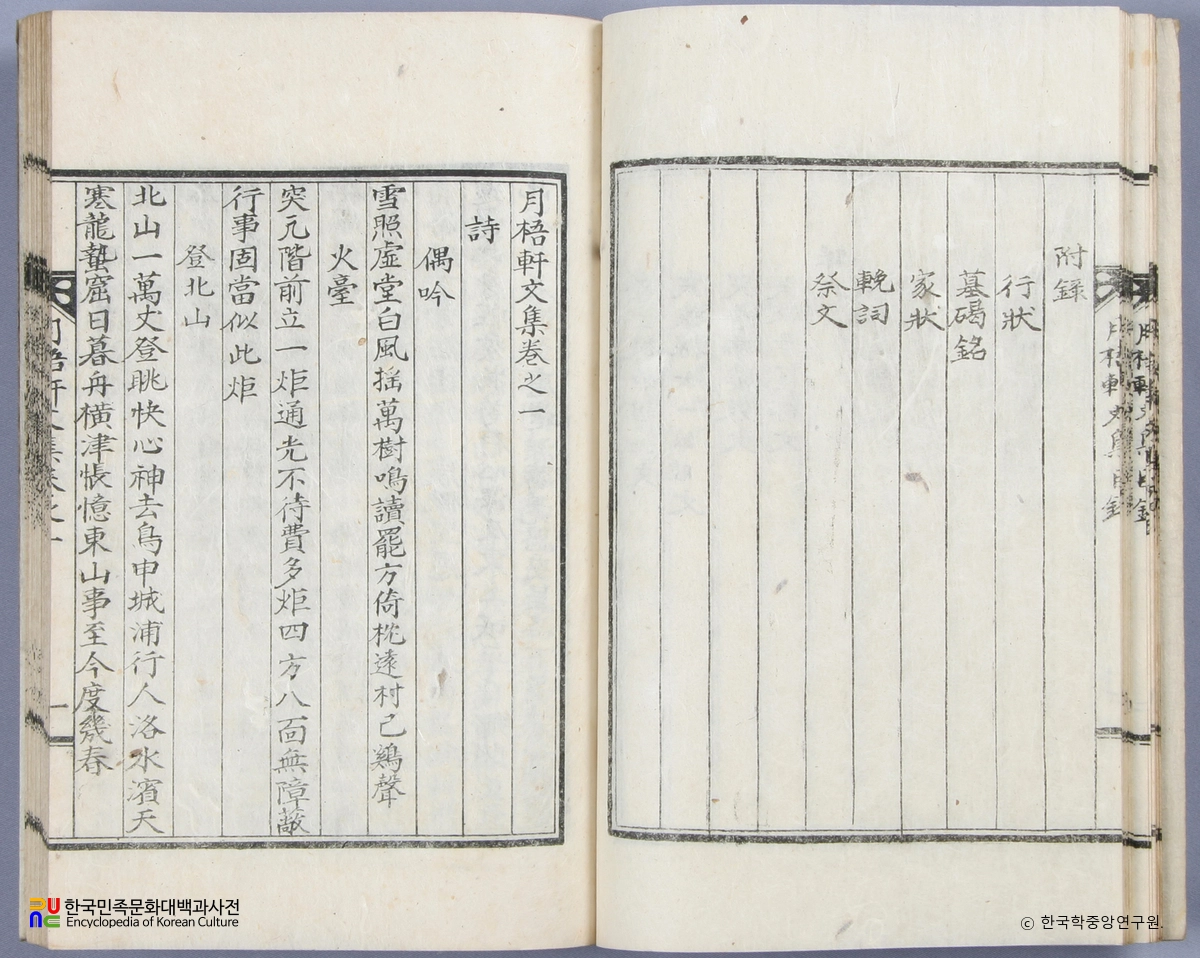 附錄
行狀
墓碣銘
家狀
輓詞
祭文
月梧軒文集卷之一
詩
偶吟
雪照虛堂白風搖萬樹鳴讀罷方倚枕遠村已鷄聲
火臺
突兀階前立一炬通光不待費多炬四方八面無障蔽
行事固當似此炬
登北山
北山一萬丈登眺快心神去鳥申城浦行人洛水濱天
寒龍蟄窟日暮舟橫津悵憶東山事至今度幾春
一
한국민족문화대백과사전
Encyclopedia of Korean Culture
ⓒ 한국학중앙연구원.